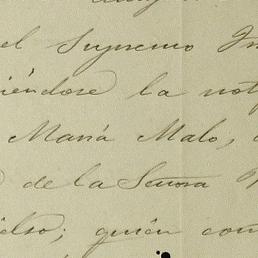 el Supremo
iéndose la not
María Malo,
de la Señora
quién com